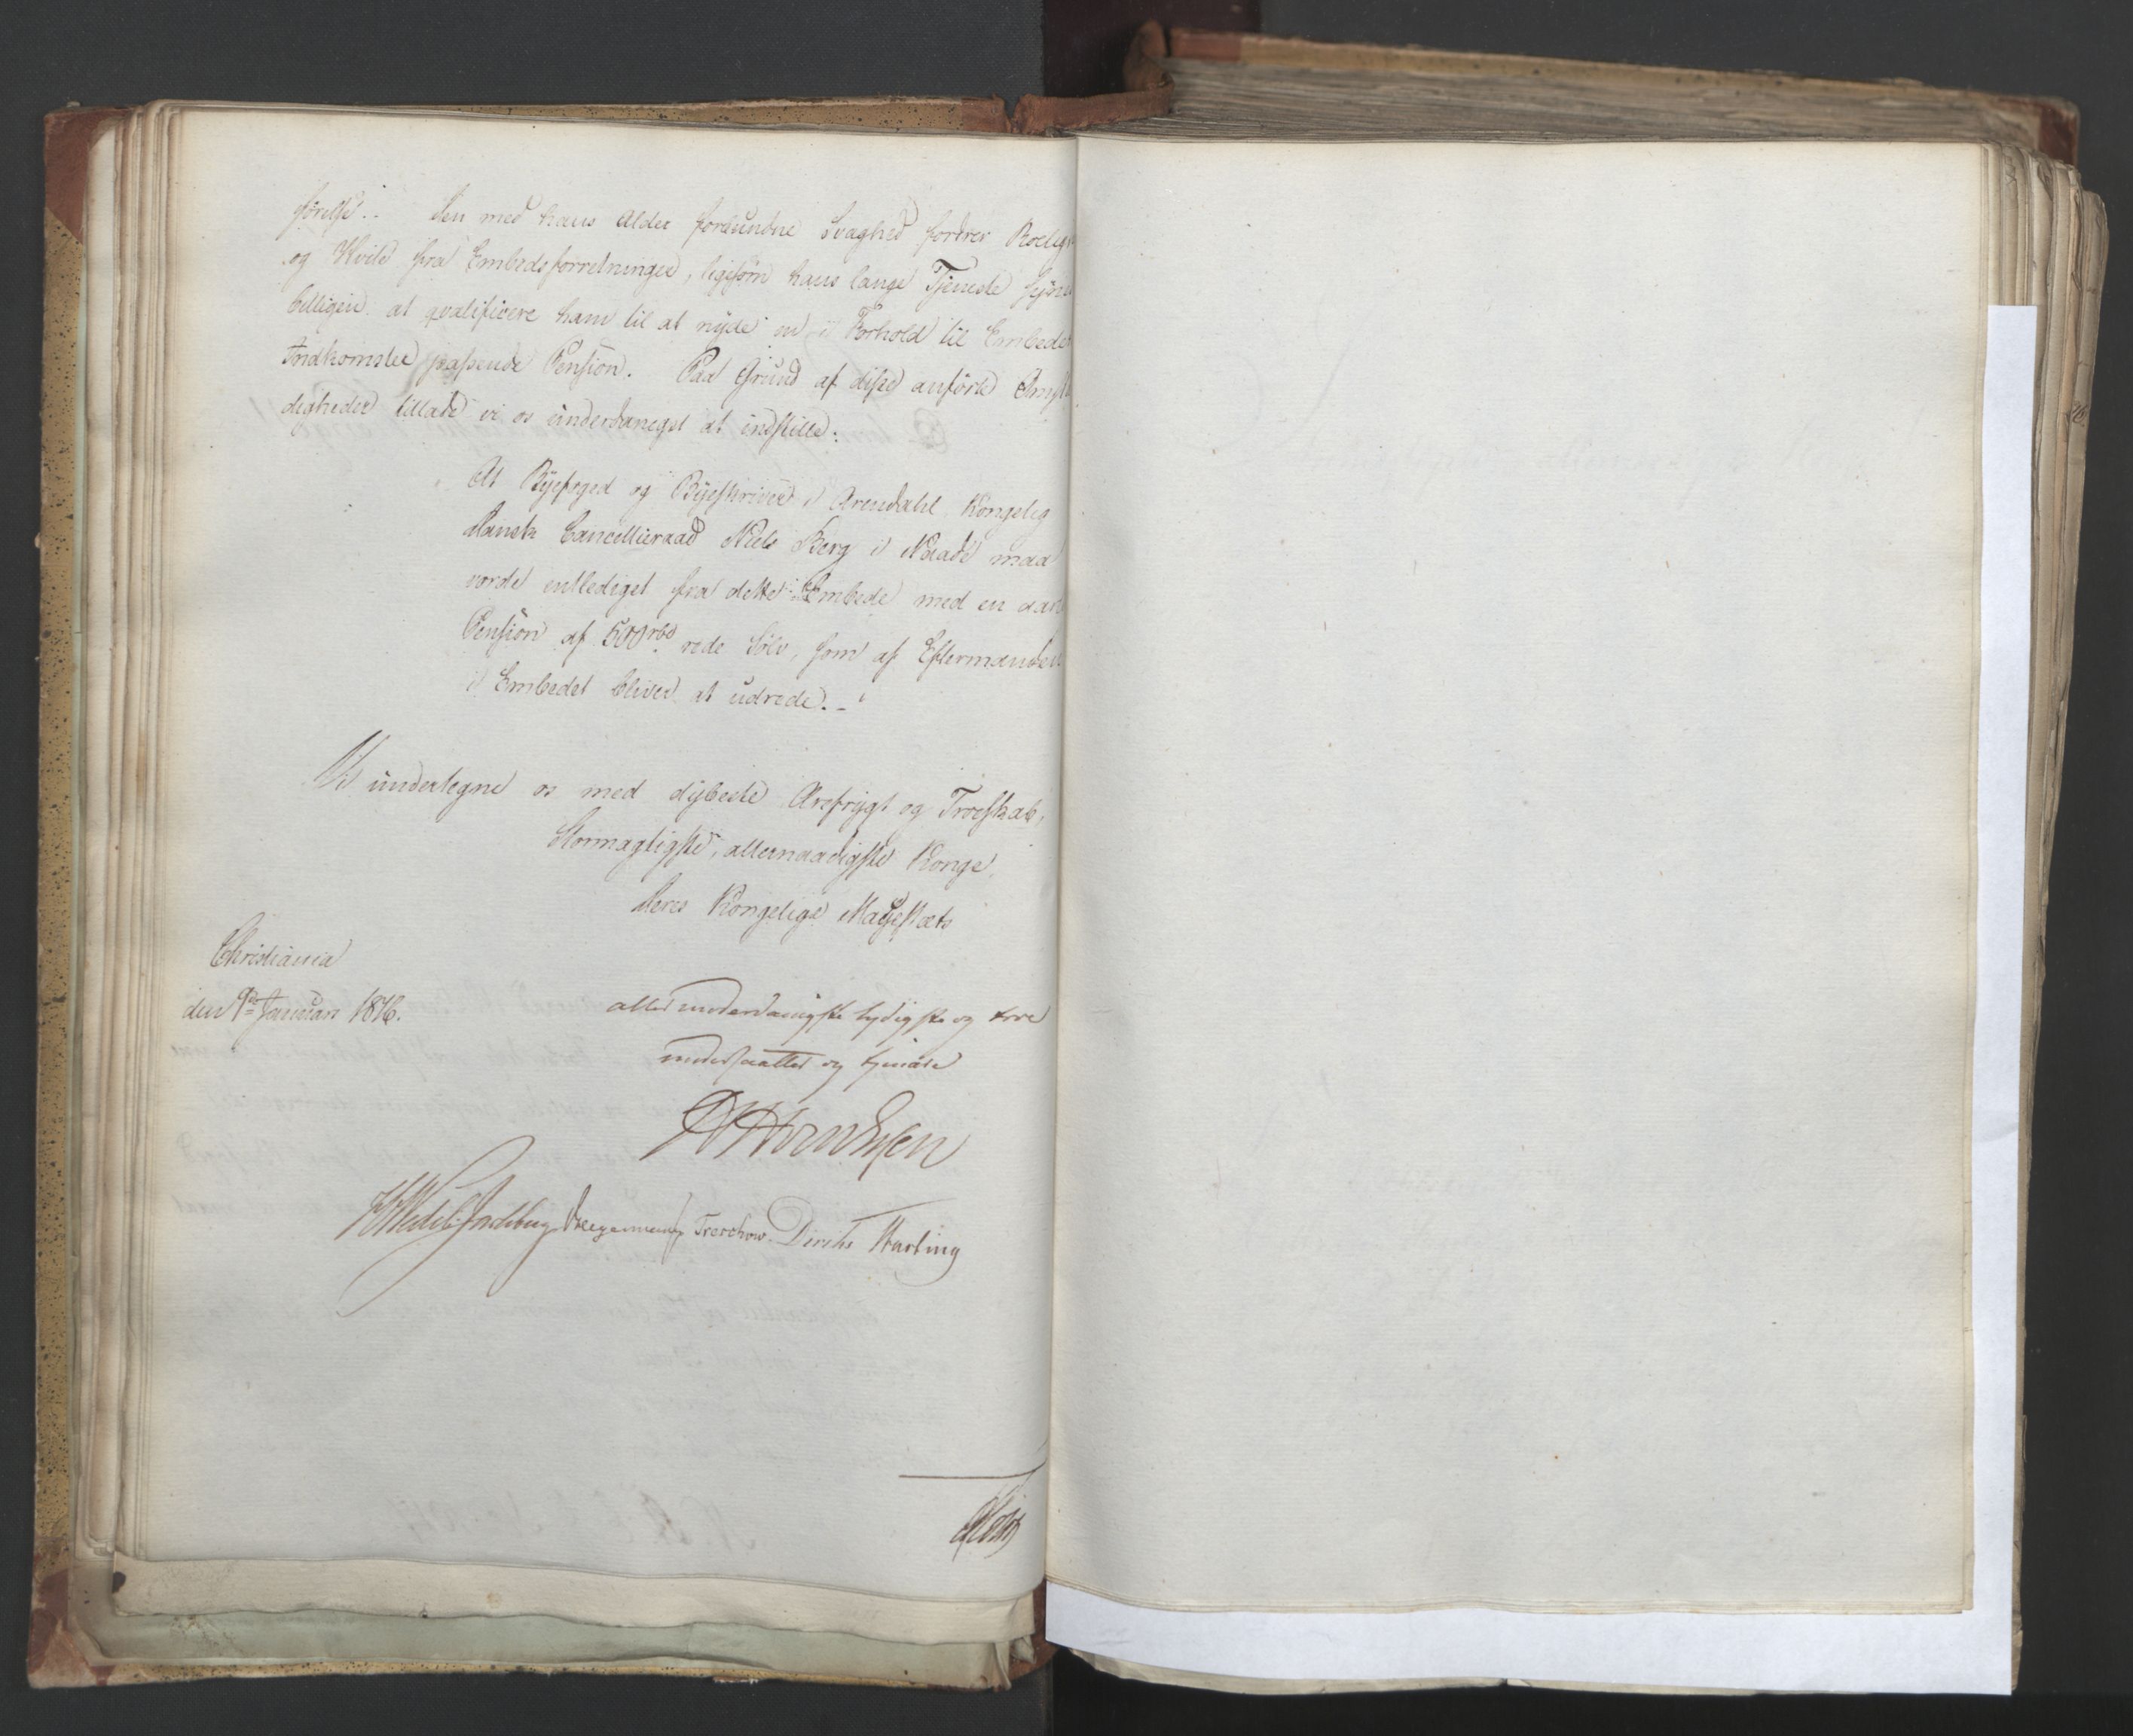 førelse.. Den med hans Alder forbundne Svaghed fordrer Roelig
og Hvile fra Embedsforretninger, ligesom hans lange Tjeneste synes
billigen at qvalificere ham til at nyde en i Forhold til Embedets
Indkomster passende Pension. Paa Grund af disse anførte Omstæn
digheder tillade vi os underdanigst at indstille:
At Byefoged og Byeskriver i Arendahl Kongelig
dansk Cancellieraad Niels Berg i Naade maa
vorde entlediget fra dette Embede med en aarl
Pension af 500 rbd rede Sølv, som af Eftermanden
i Embedet bliver at udrede. -
Vi undertegne os med dybeste Ærefrygt og Troeskab,
Stormægtigste, allernaadigste Konge,
Deres Kongelige Majestæts
Christiania
den 9de Januari 1816.
allerunderdanigste lydigste og troe
undersaatter og tjenere
H Wedel Jarlsberg Treschow Diriks Hartung